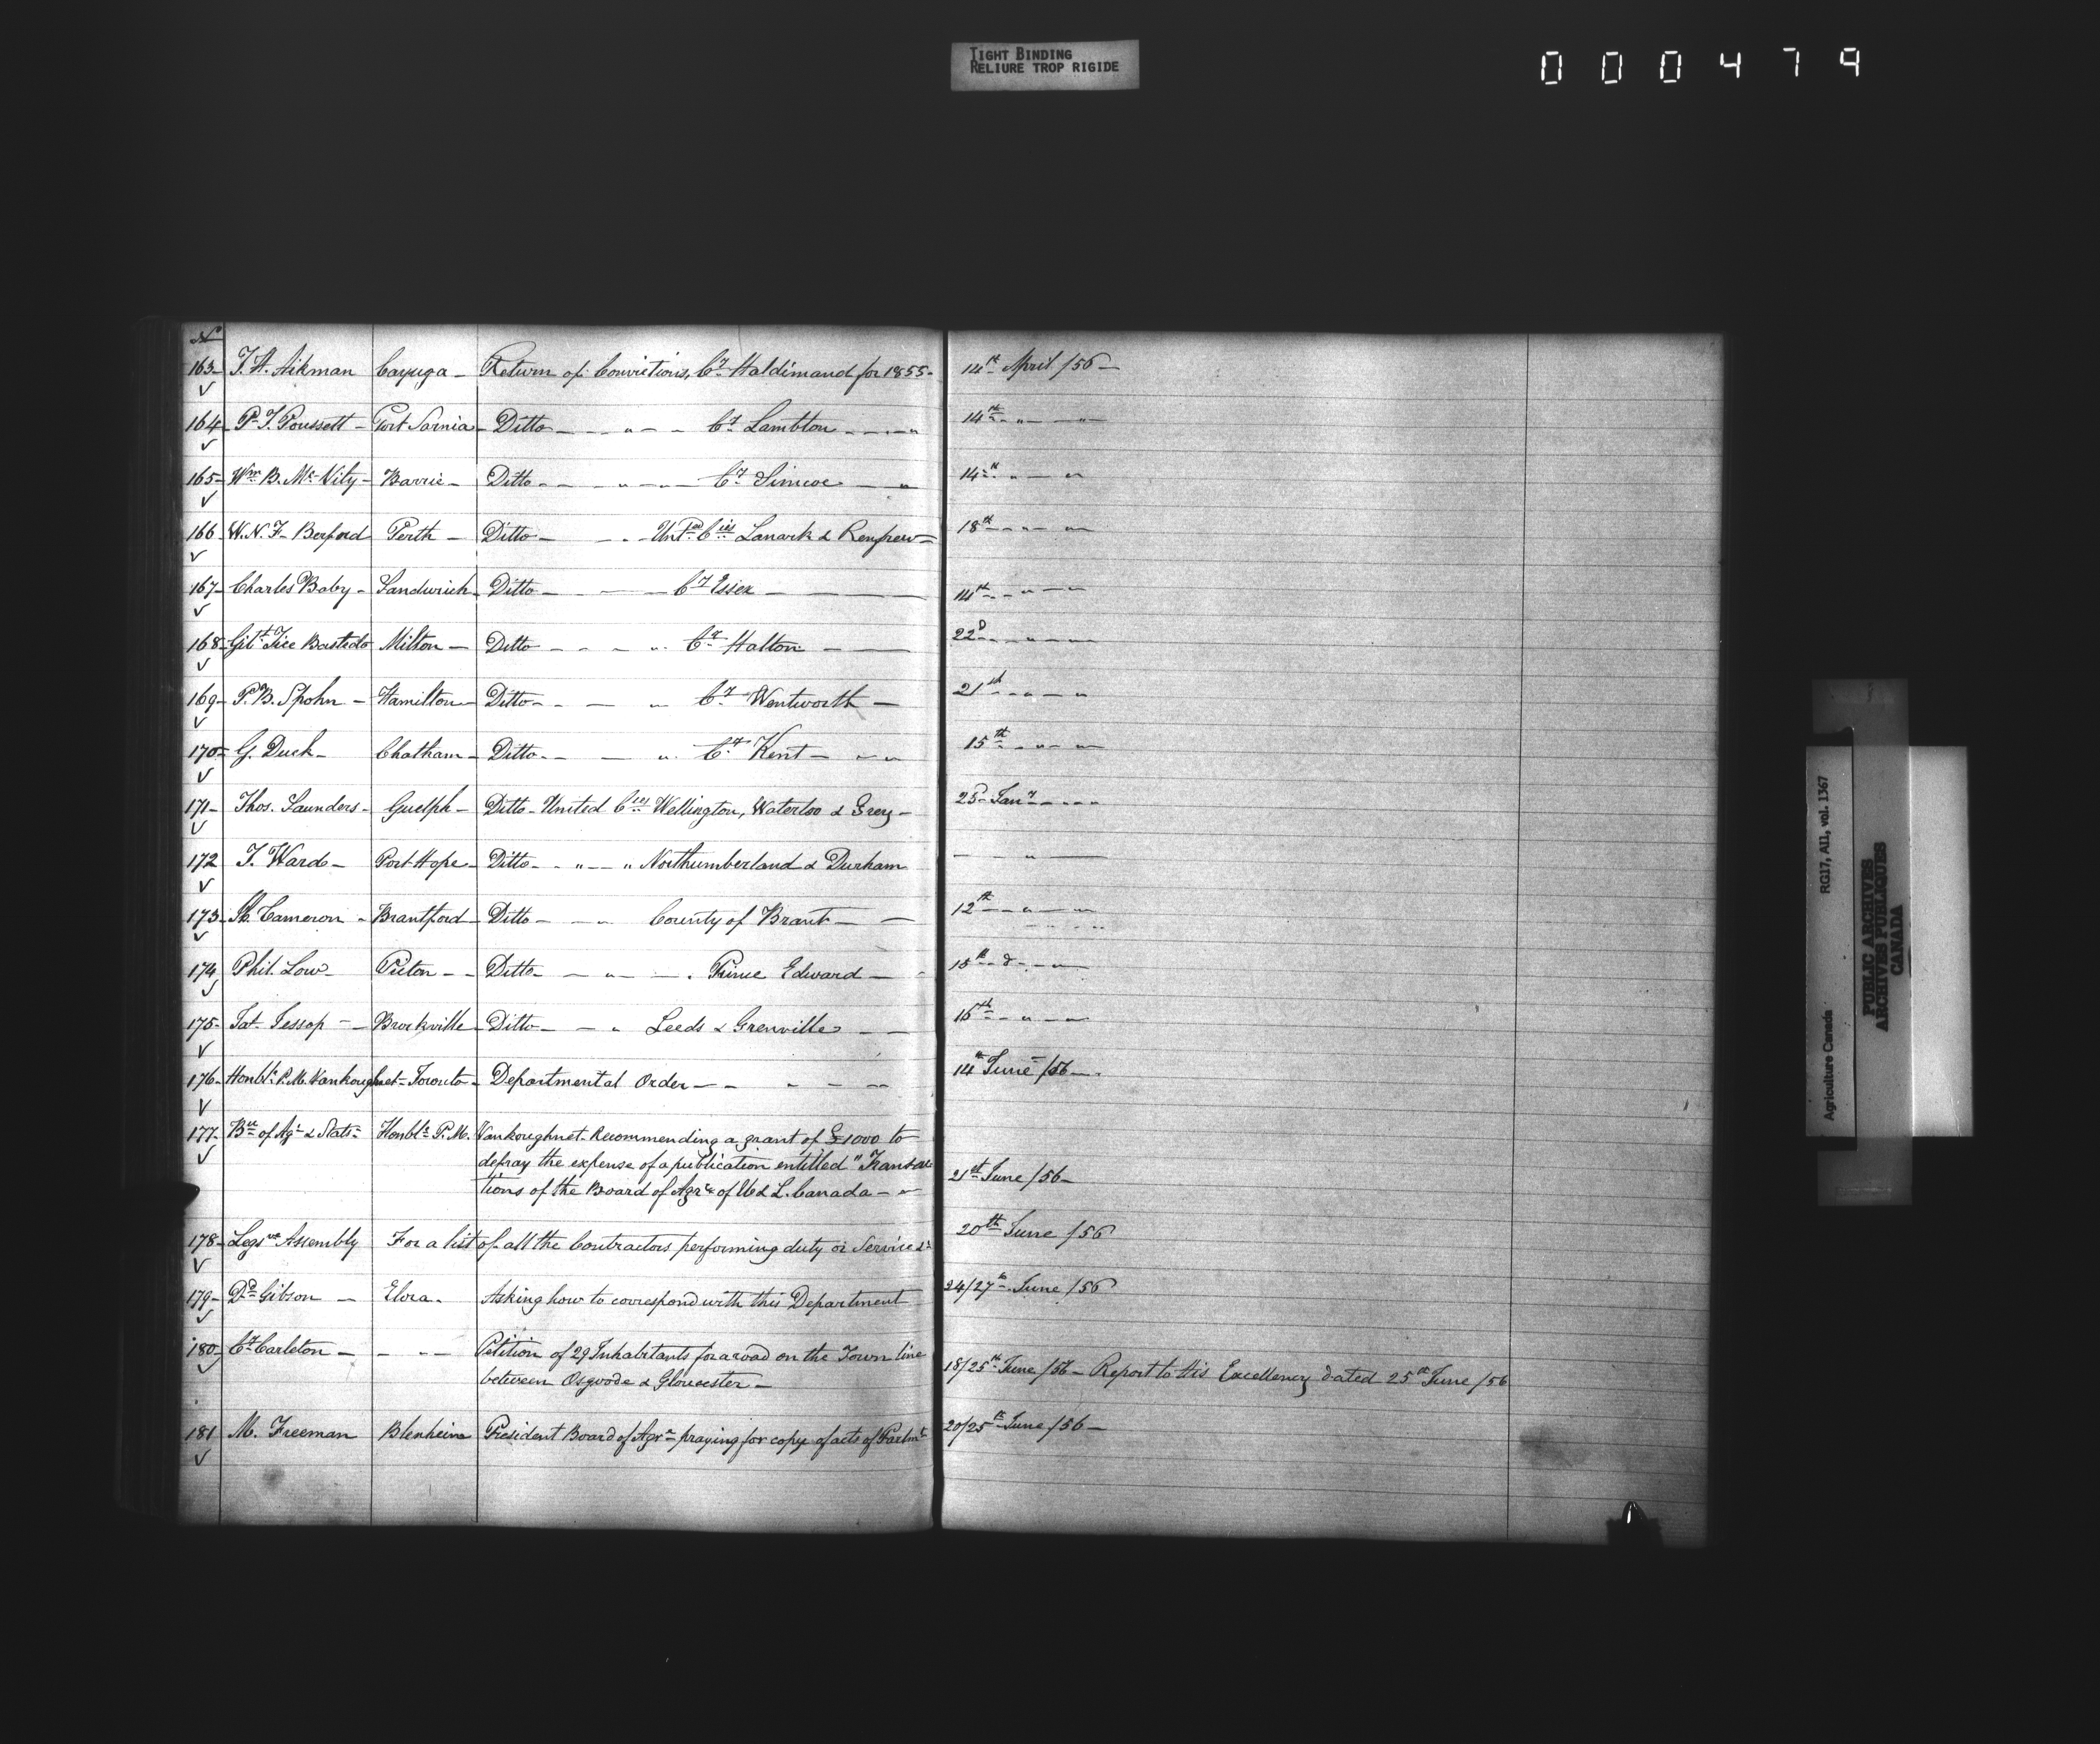 TIGHT BINDING
RELIURE TROP RIGIDE
000479
No
163 - T. H. Aikman Cayuga - Return of Convictions, Cy Haldimand for 1855 - 14th April /56 -
164 - P. T. Poussett - Port Sarnia - Ditto - - - " - - Cy Lambton - - - - " 14th - " - "
165 - Wm B. McVity - Barrie - Ditto - - - " - - Cy Simcoe - " 14th " - "
166 W. N. F. Berford Perth - Ditto - - - Untd Cies Lanark & Renfrew - 18th - - " - "
167 - Charles Baby - Sandwich - Ditto - - - Cy Essex - - 14th - - " - - "
168 - Gilt Tice Bastedo Milton - Ditto - - - " Cy Halton - - 22d - - " - -
169 - P. B. Spohn - Hamilton - Ditto - - - " Cy Wentworth - 21st - - " - "
170 - G. Duck - Chatham - Ditto - - - " Cy Kent - " " 15th - " - "
171 - Thos. Saunders - Guelph - Ditto - United Cies Wellington, Waterloo & Grey - 25 - Jany - - - -
172 T. Ward - Port Hope - Ditto - - " - - " Northumberland & Durham - " -
173 - Cameron - Brantford - Ditto - - " County of Brant - - 12th - " - "
174 Phil. Low - Picton - - Ditto - - " - - . Prince Edward - - 15th - - - "
175 - Jessop - - Brockville - Ditto - - " Leeds & Grenville - - 16th - " - "
176 - Honble P. M. Vankoughnet - Toronto - Departmental Order - - " - - 14th June /56 - .
177 - Bu of Agr & Stats - Honble P. M. Vankoughnet - Recommending a grant of £1000 to
defray the expense of a publication entitled "Transac
tions of the Board of Agre of U & L. Canada - " 21st June /56 -
178 - Legsve Assembly For a list of all the Contractors performing duty or Service &c 20th June /56
179 - Dd Gibson - Elora - Asking how to correspond with this Department 24/27th June /56
180 - Cy Carleton - - - - Petition of 29 Inhabitants for a road on the Town line
between Osgoode & Gloucester - 18/25th June /56 - Report to His Excellency dated 25th June /56
181 M. Freeman Blenheim President Board of Agre praying for copy of acts of Parlmt 20/25th June /56 -
Agriculture Canada RG17, AII, vol. 1367
PUBLIC ARCHIVES
ARCHIVES PUBLIQUES
CANADA